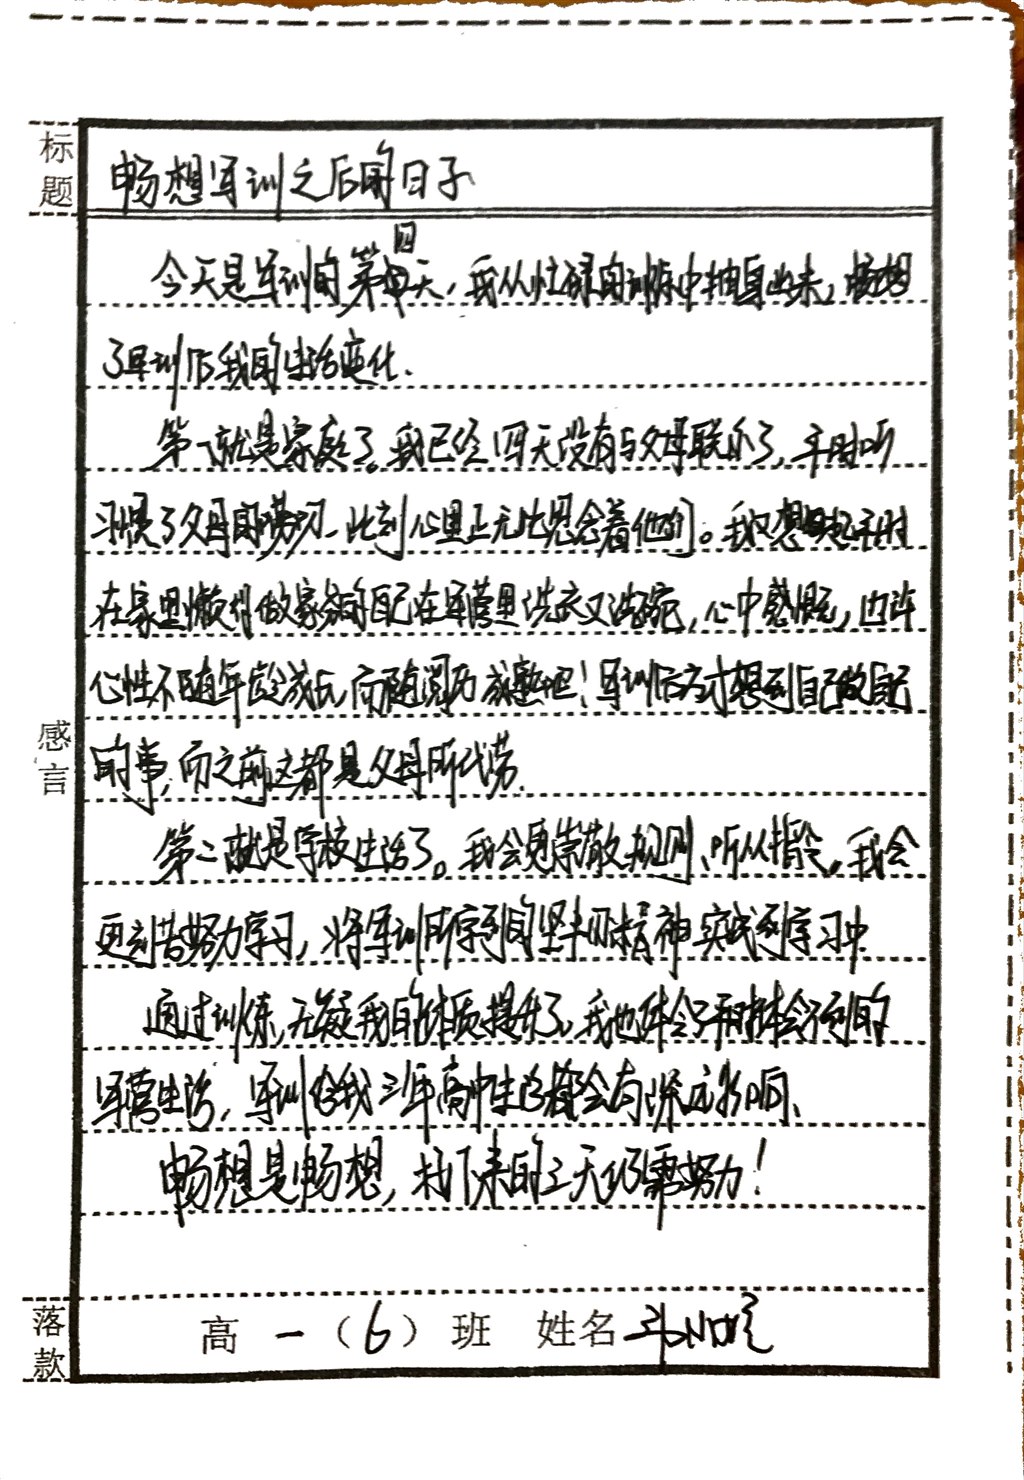 标题
畅想军训之后的日子
今天是军训的第四天，我从忙碌的训练中抽身出来，畅想
了军训后我的生活变化.
第一就是家庭了。我已经四天没有与父母联系了，平时听
习惯了父母的唠叨，此刻心里正无比思念着他们。我又想起平时
在家里懒得做家务的自己在军营里洗衣又洗碗，心中感慨，也许
心性不随年龄成长，而随阅历成熟吧！军训后方才想到自己做自己
的事，而之前这都是父母所代劳.
感言
第二就是学校生活了。我会更崇敬规则、听从指令。我会
更刻苦努力学习，将军训所学到的坚持不懈精神实践到学习中.
通过训练，无疑我的体质提升了，我也体会了平时体会不到的
军营生活，军训给我三年高中生活都会有深远影响.
畅想是畅想，接下来的三天仍需努力！
落款
高一（6）班 姓名